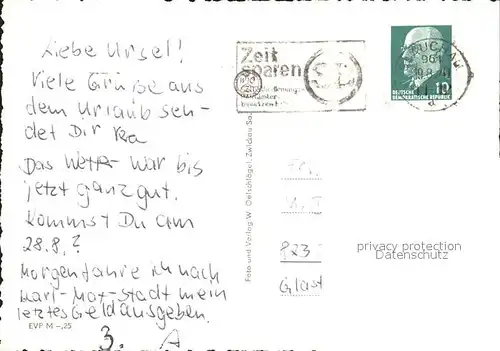 Liebe Ursel!
Viele Grüße aus
dem Urlaub sen-
det Dir
Das Wetter war bis
jetzt ganz gut.
Kommst Du am
28.8.?
Morgen fahre ich nach
Karl-Mar-Stadt mein
letztes Geld ausgeben.
EVP M -,25
3.
Foto und Verlag W. Oelschlägel, Zwickau Sa.
Zeit
sparen
benutzen
DEUTSCHE
DEMOKRATISCHE REPUBLIK
10
823
Glast
privacy protection
Datenschutz